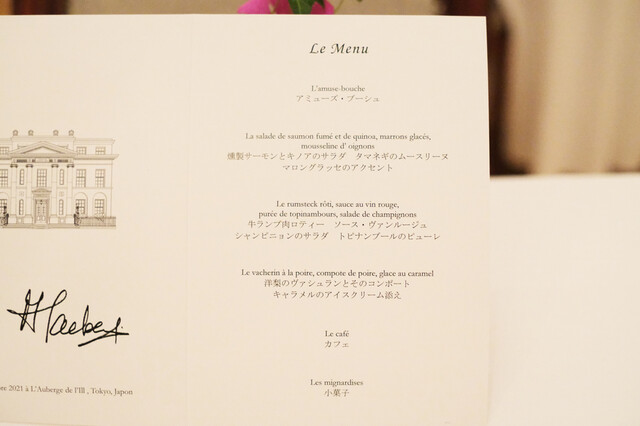 Le Menu
L'amuse-bouche
アミューズ・ブーシュ
La salade de saumon fumé et de quinoa, marrons glacés,
mousseline d' oignons
燻製サーモンとキノアのサラダ　タマネギのムースリーヌ
マロングラッセのアクセント
Le rumsteck rôti, sauce au vin rouge,
purée de topinambours, salade de champignons
牛ランプ肉ロティー　ソース・ヴァンルージュ
シャンピニョンのサラダ　トピナンブールのピューレ
Le vacherin à la poire, compote de poire, glace au caramel
洋梨のヴァシュランとそのコンポート
キャラメルのアイスクリーム添え
Le café
カフェ
Les mignardises
小菓子
2021 à L'Auberge de l'Ill , Tokyo, Japon